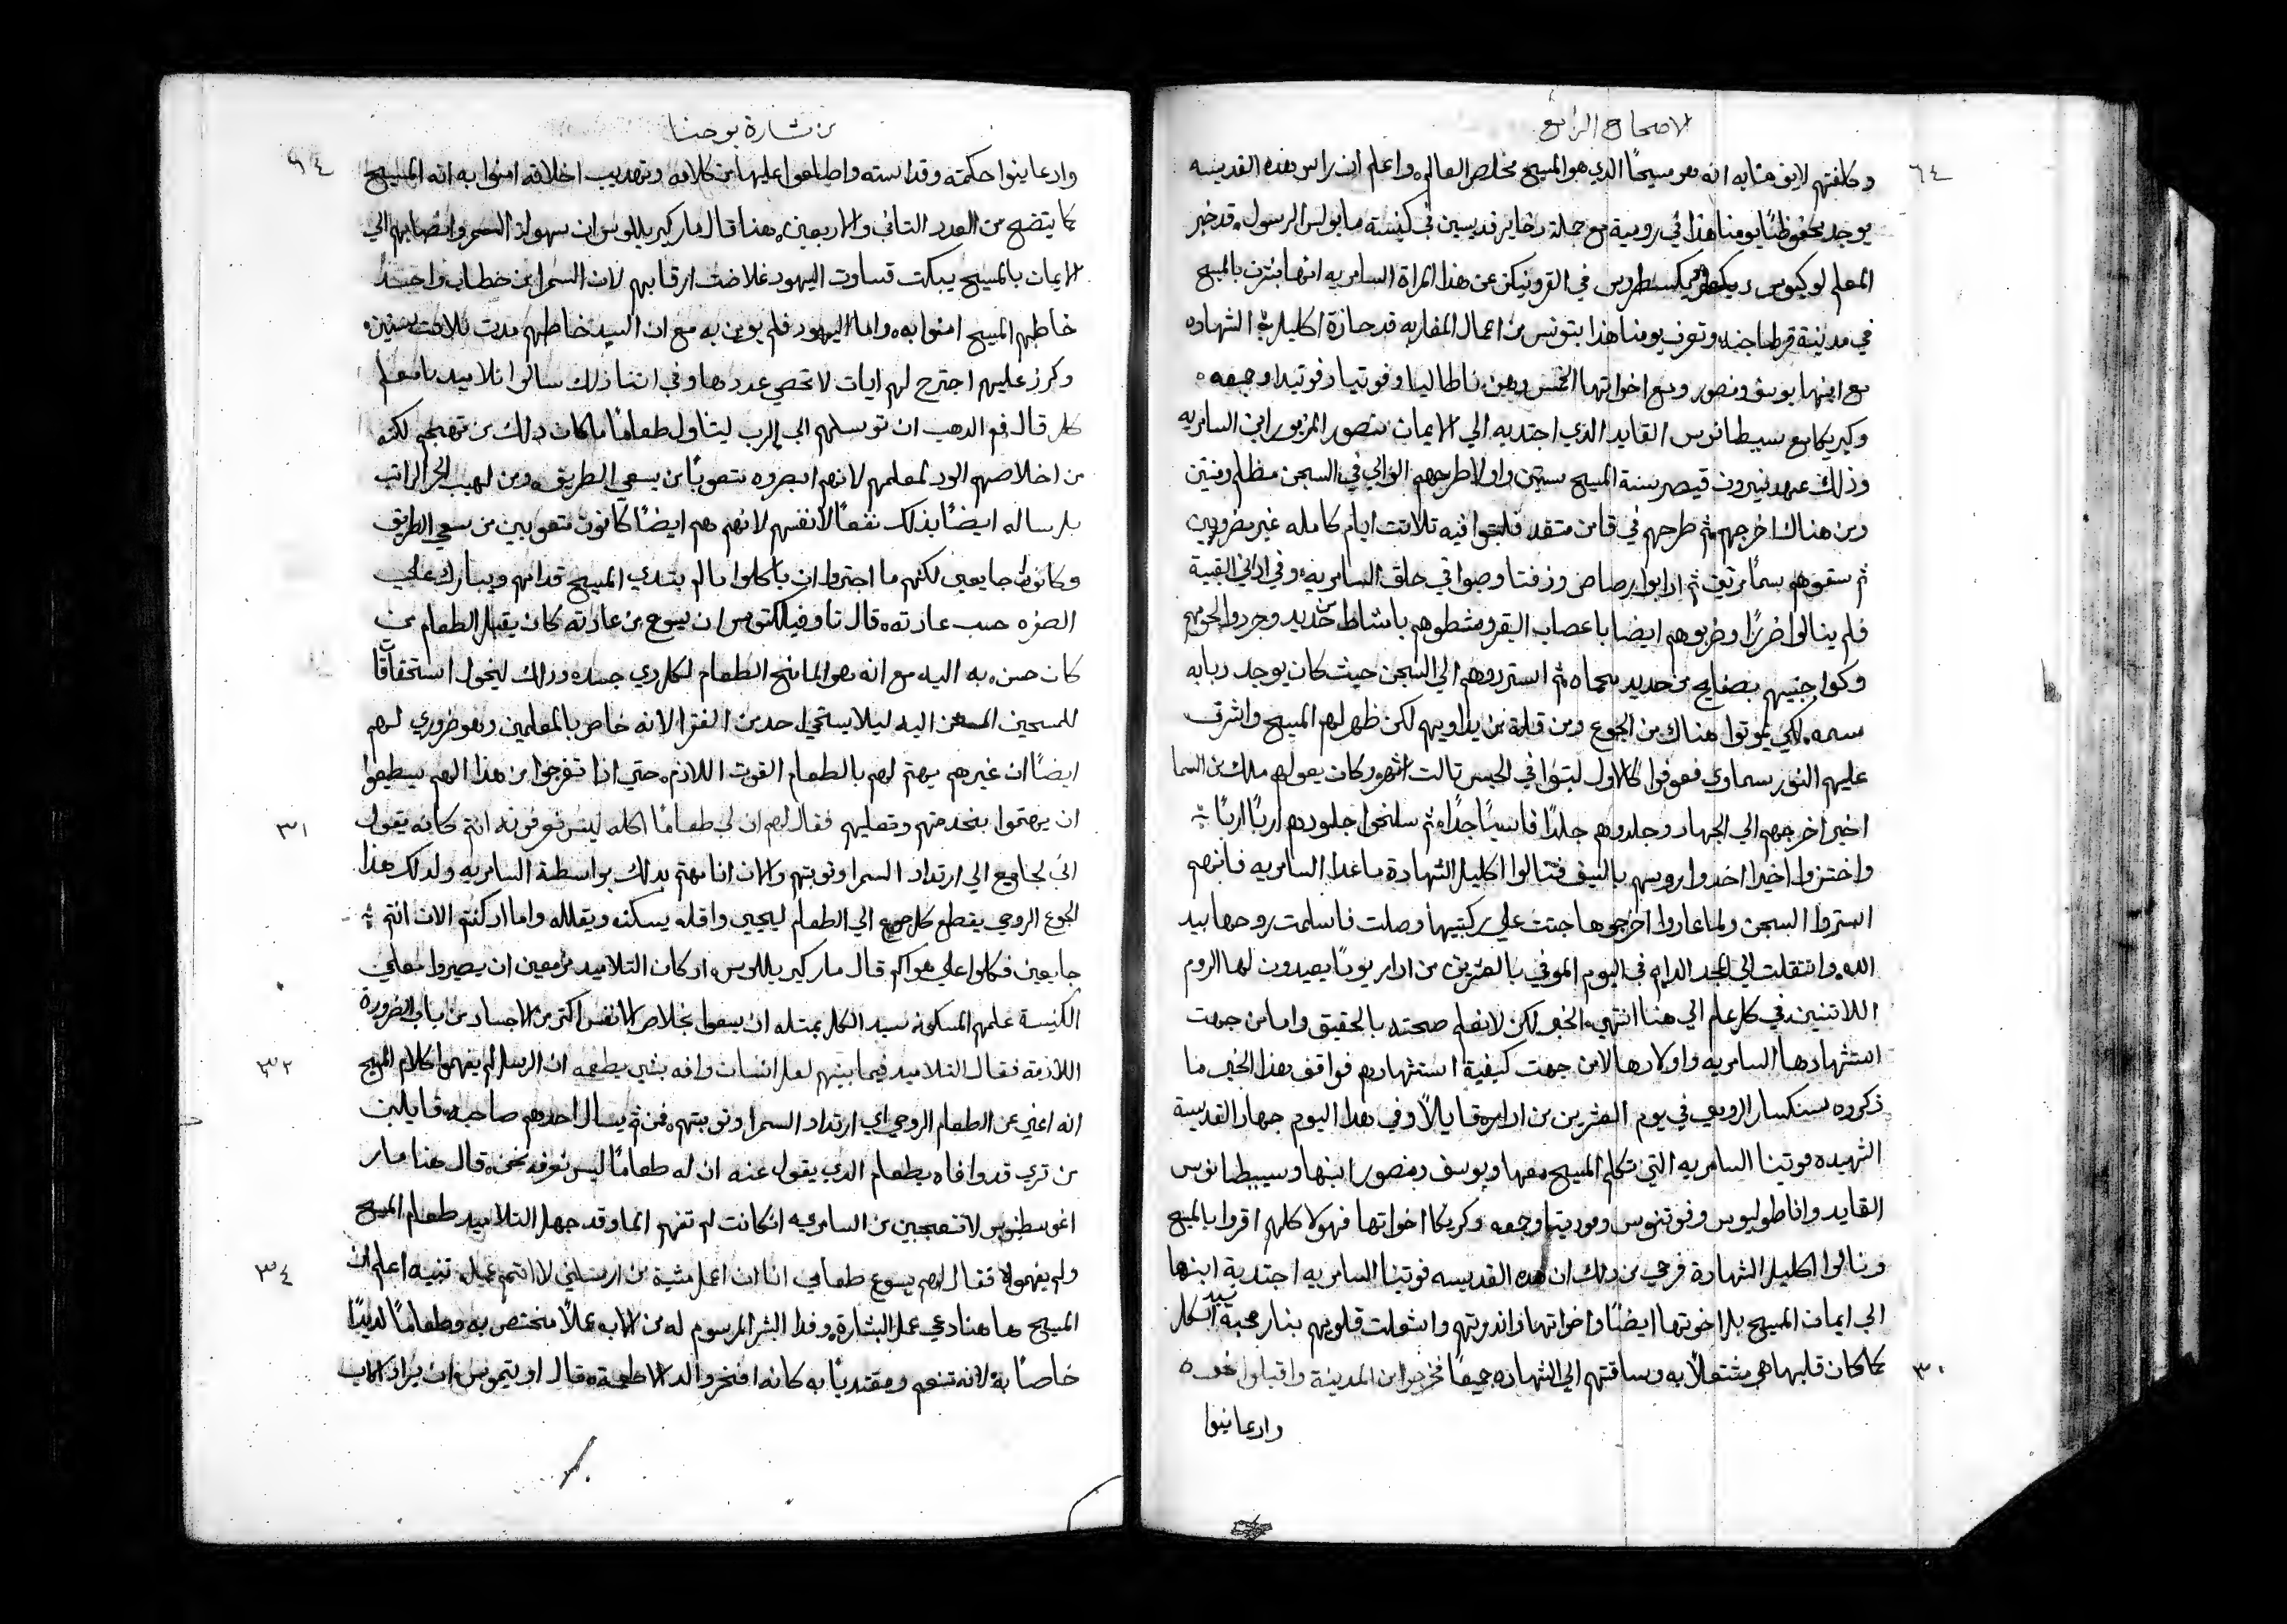 الاصحاح الرابع
٦٤
وكلفتهم لايقرعنا به انه هو مسيحًا الذي هو المسيح مخلص العالم، واعلم ان راس هذه القديسه
يوجد محفوظًا يومنا هذا في رومية مع جملة دخاير قديسين في كنيسة مابولس الرسول، قد خبر
المعلم لوكيوس في القرونيكن عن هذا المراة السامريه انها بشرت بالمسيح
في مدينة قرطاجنه وتعرف يومنا هذا بتونس من اعمال المغاربه قد حازة اكليل الشهاده
مع ابنها يوسف ومنصور ومع اخواتها الخمس وهن ناطاليا وفوتيا وفوتيدا وجمعه
وكيريكا مع سيبسطيانوس القايد الذي اجتذبه الي الايمان منصور المزبور ابن السامريه
وذلك عهد نيرون قيصر سنة المسيح ستين واولا طرحهم الوالي في السجن مظلم ومنتن
ومن هناك اخرجهم ثم طرحهم في قامن متقد فلبثوا فيه تلاتت ايام كامله غير مضرورين
ثم سقوهم سمًا مرتين ثم ادابوا رصاص وزفتا وصبوا في حلق السامريه وفي ادان البقية
فلم ينالوا ضررًا وضربوهم ايضا باعصاب البقر ومشطوهم بامشاط من حديد وجردوا لحومهم
وكوا جنبيهم بصفايح من حديد محماه ثم استردوهم الي السجن حيث كان يوجد دبابه
سمه، لكي يموتوا هناك من الجوع ومن قلة من يداويهم لكن ظهر لهم المسيح واشرق
عليهم النور سماوي فعوفوا كالاول لبثوا في الحبس تالت اشهر وكان يعولهم ملك من السما
اخيرا اخرجهم الي الجهاد وجلدوهم جلدًا قاسيًا جدًا ثم سلخوا جلودهم اربًا اربًا
واختزوا اخيرا اخدوا روسهم بالسيف فنالوا اكليل الشهادة ماعدا السامريه فانهم
استردوا السجن ولما عادوا اخرجوها جتت علي ركبتيها وصلت فاسلمت روحها بيد
الله وانتقلت الي المجد الدايم في اليوم الموفي بالعشرين من ادار يومًا يعيدون لها الروم
اللاتنيين في كل عام الي هنا انتهي الخبر لكن لا نعلم صحته بالحقيق واما من جهت
استشهادها السامريه واولادها لامن جهت كيفية استشهادهم فوافق هذا الخبر ما
ذكروه سنكسار الرومي في يوم العشرين من ادار قايلاً وفي هدا اليوم جهاد القديسة
الشهيده فوتينا السامريه التي تكلم المسيح معها ويوسف ومنصور ابنها وسيبسطيانوس
القايد واناطوليوس وفوتنيوس وفوديتا وجمعه وكريكا اخواتها فهولا كلهم اقروا بالمسيح
ونالوا اكليل الشهادة فرحي من دلك ان هده القديسه فوتينا السامريه اجتدبة ابنها
الي ايمان المسيح بل اخوتها ايضًا واخواتها واندرتهم واشعلت قلوبهم بنار محبة سيد الكل
كما كان قلبها هي مشتعلاً به وساقتهم الي الشهاده جميعًا فخرجوا من المدينة واقبلوا نحوه
٣٠
وادعاينوا
من بشارة يوحنا
٦٤
وادعاينوا حكمته وقداسته واطلعوا عليها من كلامه وتهديب اخلاقه امنوا به انه المسيح
كما يتضح من العدد التاني والاربعين، هنا قال مار كيريللوس ان سهولة السمر وانضمامهم الي
الايمان بالمسيح يبكت قساوت اليهود غلاضت ارقابهم لان السمرا من خطاب واحدٍ
خاطبهم المسيح امنوا به، واما اليهود فلم يومن به مع ان السيد خاطبهم مدت تلاتت سنين،
وكرز عليهم اجترح لهم ايات لا تحصي عددها وفي اتنا ذلك سالوا تلاميد يامعلم
كل قال فم الدهب ان توسلهم الي الرب ليتناول طعامًا ما كان دلك من تهجم لكنه
من اخلاصهم الود لمعلمهم لانهم ابصروه متعوبًا من سعي الطريق ومن لهيب الحر الراتب
بل رساله ايضًا بذلك نفعًا لانفسهم لانهم هم ايضًا كانون متعوبين من سعي الطريق
وكانون جايعين لكنهم ما اجتروا ان ياكلوا ما لم يبتدي المسيح قدامهم ويبارك علي
السفره حسب عادته، قال تاوفيلكتوس ان يسوع من عادته كان يقبل الطعام من
كان حسن به اليه مع انه هو المانح الطعام لكل دي جسد، ودلك ليخول استحقاقًا
للمسحين المسعن اليه ليلا يستحي احد من الفقرا لانه خاص بالمعلمين وهو ضروري لهم
ايضًا ان غيرهم يهتم لهم بالطعام القوت اللازم، حتي ادا تفرجوا من هذا الهم يسطيعوا
ان يهتموا بخدمتهم وتعليهم فقال لهم ان لي طعامًا اكله ليس تعرفونه انتم كانه يقول
٣١
اني لجاميع الي ارتداد السمرا وتوبتهم والان انا مهتم بدلك بواسطة السامريه ولدلك هذا
الجوع الروحي يقطع كل جوع الي الطعام ليجيي واقله يسكنه ويقلله واما ادكنتم الان انتم
جايعين فكلوا علي هواكم قال مار كيريللوس ادكان التلاميد مزمعين ان يصيروا معلمي
الكنيسة علمهم المسكونه سيد الكل بمتله ان يسعوا بخلاص الانفس اكتر من الاجساد من باب الضرورة
اللازمة فقال التلاميد فيما بينهم لعل انسان وافه بشي يطعمه ان الرسل لم يفهموا كلام المسيح
٣٢
انه اعني عن الطعام الروحي اي ارتداد السمرا وتوبتهم، فمن ثم يسال احدهم صاحبه قايلين
من تري قد وافاه بطعام الدي يقول عنه ان له طعامًا ليس نعرفه نحن، قال هنا مار
اغوسطينوس لا تتعجبين من السامريه انكانت لم تفهم الما وقد جهل التلاميد طعام المسيح
ولم يفهموه فقال لهم يسوع طعامي انا ان اعمل مشية من ارسلني لاتمم عمله تنبيه اعلم ان
٣٤
المسيح هاهنا دعي عمل البشارة وفدا البشر المرسوم له من الاب عملاً مختص به وطعامًا لديدًا
خاصًا به لانه تنعم ومقتديًا به كانه افخر والد الاطعمة، قال اوتيموس ان يراد الاب